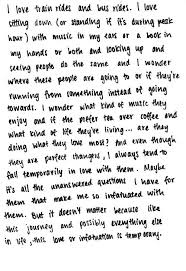 I love train rides and bus rides. I love
sitting down (or standing if it's during peak
hour) with music in my ears or a book in
my hands or both and looking up and
seeing people do the same and I wonder
where these people are going to or if they're
running from something instead of going
towards. I wonder what kind of music they
enjoy and if the prefer tea over coffee and
what kind of life they're living... are they
doing what they love most? And even though
they are perfect strangers, I always tend to
fall temporarily in love with them. Maybe
it's all the unanswered questions I have for
them that make me so infatuated with
them. But it doesn't matter because like
this journey and possibly everything else
in life, this love or infatuation is temporary.